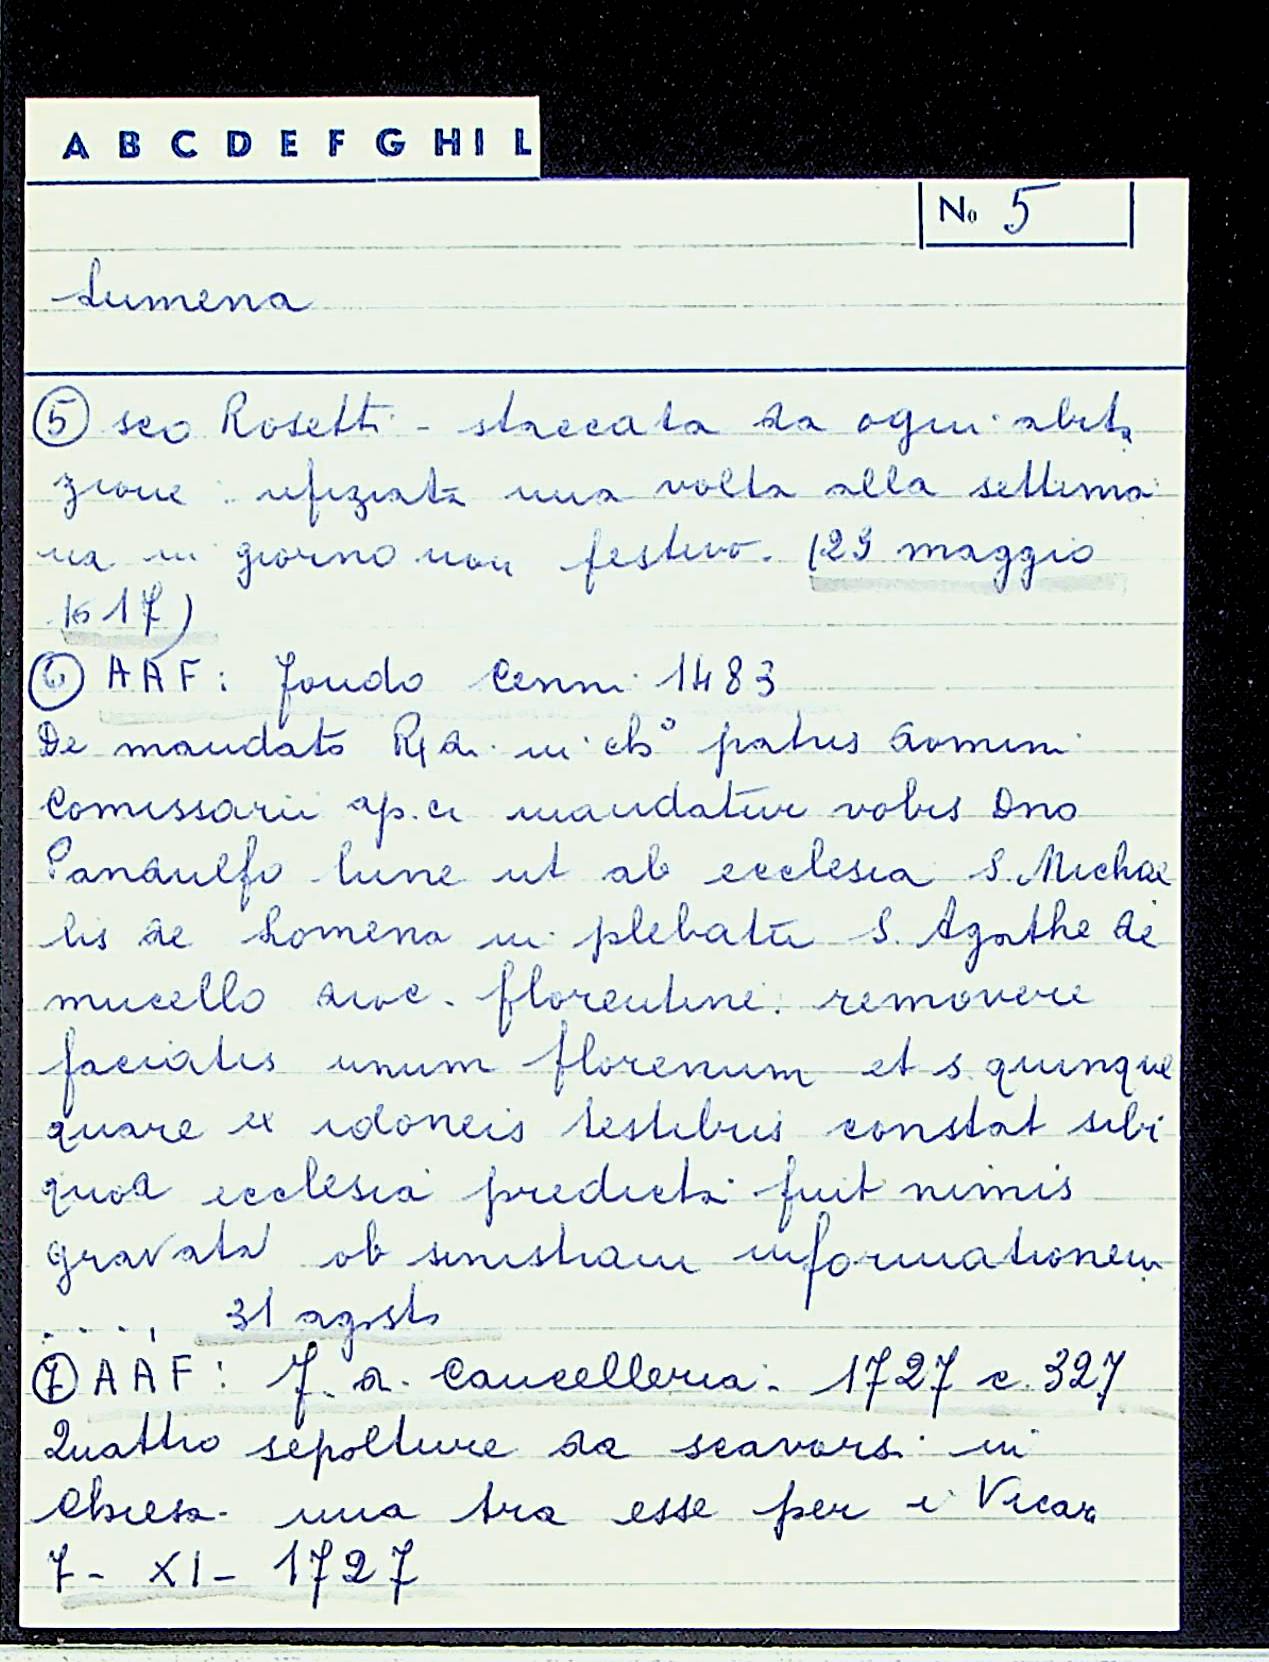 A B C D E F G H I L
No 5
Lumena
⑤ sco Rosetti - staccata da ogni abita
zione: ufiziata una volta alla settima
na in giorno non festivo. (29 maggio
1617)
⑥ AAF: fondo Cenni 1483
De mandato R in patris domini
Comissarii ap.ci mandatur vobis Dno
Pandulfo lune ut ab ecclesia S. Michae
lis de Lomena in plebatu S. Agathe de
mucello dioc. florentine: removere
faciatis unum florenum et s. quinque
quare ex idoneis testibus constat sibi
quod ecclesia predicta fuit nimis
gravata ob sinistram informationem
...., 31 agosto
⑦ AAF: f. a. Cancelleria. 1727 c. 327
Quattro sepolture da scavarsi in
Chiesa. una tra esse per i Vicari
7 - XI - 1727